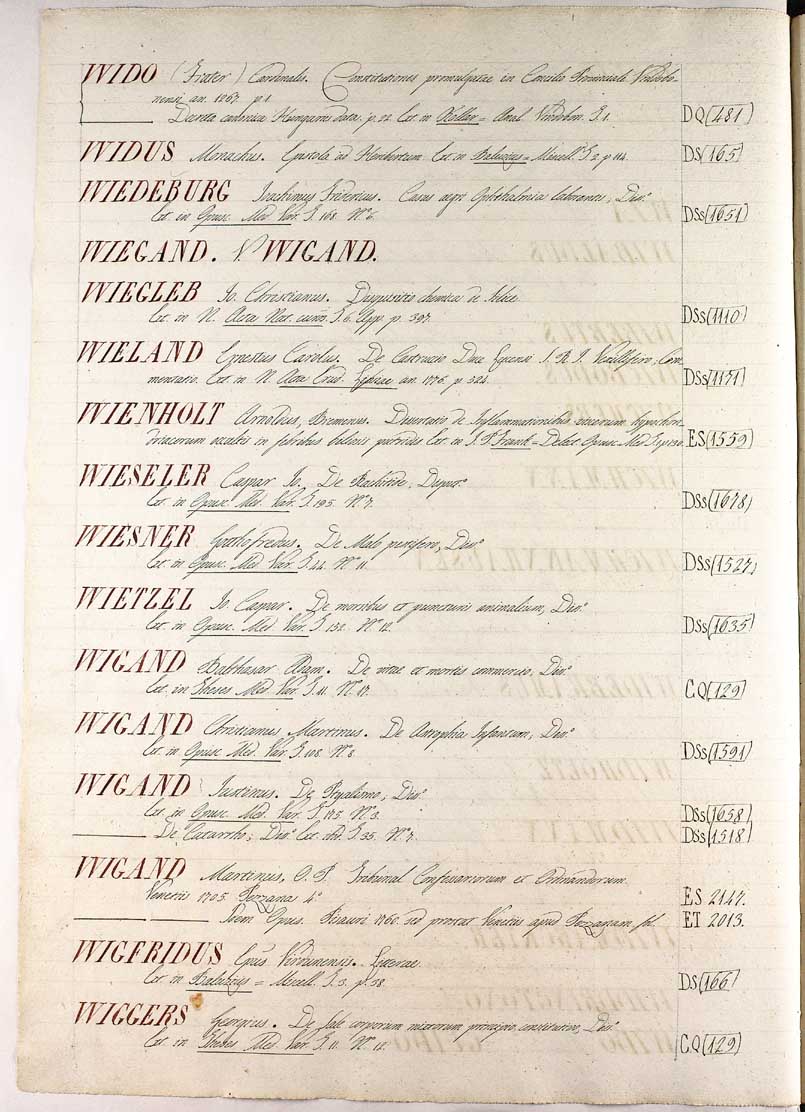 WIDO (Frater) Cardinalis. Constitutiones promulgatae in Concilio Provinciali Vindobo-
nensi an. 1267. p. 1
Decreta ecclesiae Hungariae data. p. 22. Ext. in Kollar = Anal. Vindobon. T. 1. DQ (481)
WIDUS Monachus. Epistola ad Heribertum. Ext. in Baluzius = Miscell. T. 2. p. 114. DS (165)
WIEDEBURG Ioachimus Fridericus. Casus aegri Ophthalmia laborantis, Diss.o
Ext. in Opusc. Med. Var. T. 168. N.o 6. DSs (1651)
WIEGAND. V. WIGAND.
WIEGLEB Io. Christianus. Disquisitio chemica de Silice
Ext. in N. Acta Nat. curios. T. 6. App. p. 397. DSs (1110)
WIELAND Ernestus Carolus. De Castrucio Duce S. R. I. Vexillifero, Com-
mentatio. Ext. in N. Acta Erud. Lipsiae an. 1776. p. 324. DSs (1171)
WIENHOLT Arnoldus, Bremensis. Dissertatio de Inflammationibus viscerum hypochon-
driacorum occultis in febribus biliosis putridis Ext. in I. P. Franck = Delect. Opusc. Med. ES (1559)
WIESELER Caspar Io. De Rachitide, Disput.o
Ext. in Opusc. Med. Var. T. 195. N.o 7. DSs (1678)
WIESNER Gottofredus. De Malo pestifero, Diss.o
Ext. in Opusc. Med. Var. T. 44. N.o 11. DSs (1527)
WIETZEL Io. Caspar. De morsibus et puncturis animalium, Diss.o
Ext. in Opusc. Med. Var. T. 152. N.o 12. DSs (1635)
WIGAND Balthasar Adam. De vitae et mortis commercio, Diss.o
Ext. in Theses Med. Var. T. 11. N.o 17. C.Q (129)
WIGAND Christianus Martinus. De Astrophia Infantum, Diss.o
Ext. in Opusc. Med. Var. T. 108. N.o 8. DSs (1591)
WIGAND Iustinus. De Ptyalismo, Diss.o
Ext. in Opusc. Med. Var. T. 175. N.o 3. DSs (1658)
De Catarrho, Diss.o Ext. ibi. T. 35. N.o 7. DSs (1518)
WIGAND Martinus, O. P. Tribunal Confessariorum et Ordinandorum.
Venetiis 1705. Pezzana 4.o ES 2147.
Idem Opus. Pisauri 1760. sed prostat Venetiis apud Pezzanam fol. ET 2013.
WIGFRIDUS Epūs Virdunensis. Litterae.
Ext. in Baluzius = Miscell. T. 3. p. 38. DS (166)
WIGGERS Georgius. De Sale corporum mixtorum principio constitutivo, Diss.o
Ext. in Theses Med. Var. T. 11. N.o 12. C.Q (129)